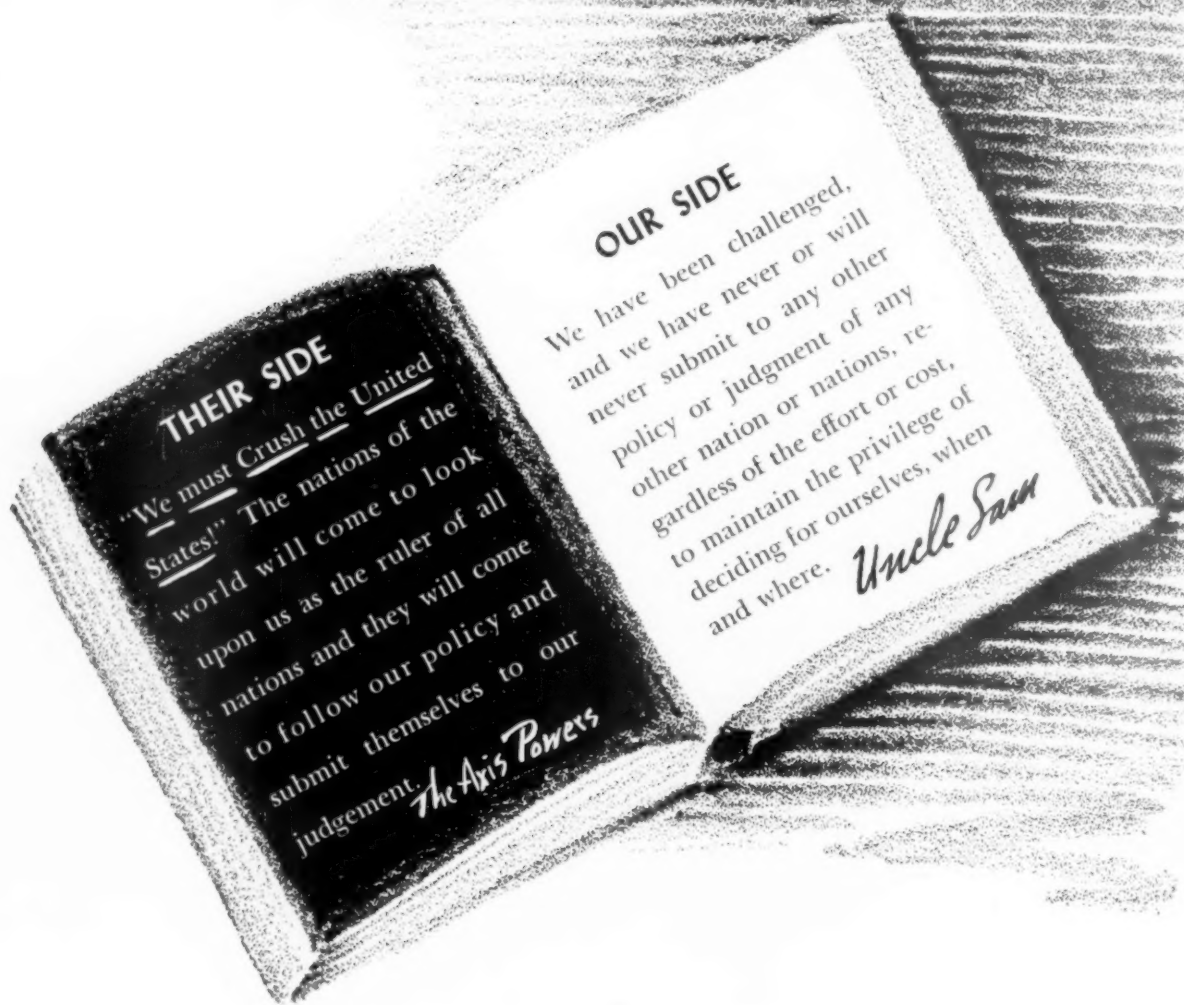 THEIR SIDE
"We must Crush the United
States!" The nations of the
world will come to look
upon us as the ruler of all
nations and they will come
to follow our policy and
submit themselves to our
judgement.
The Axis Powers
OUR SIDE
We have been challenged,
and we have never or will
never submit to any other
policy or judgment of any
other nation or nations, re-
gardless of the effort or cost,
to maintain the privilege of
deciding for ourselves, when
and where.
Uncle Sam